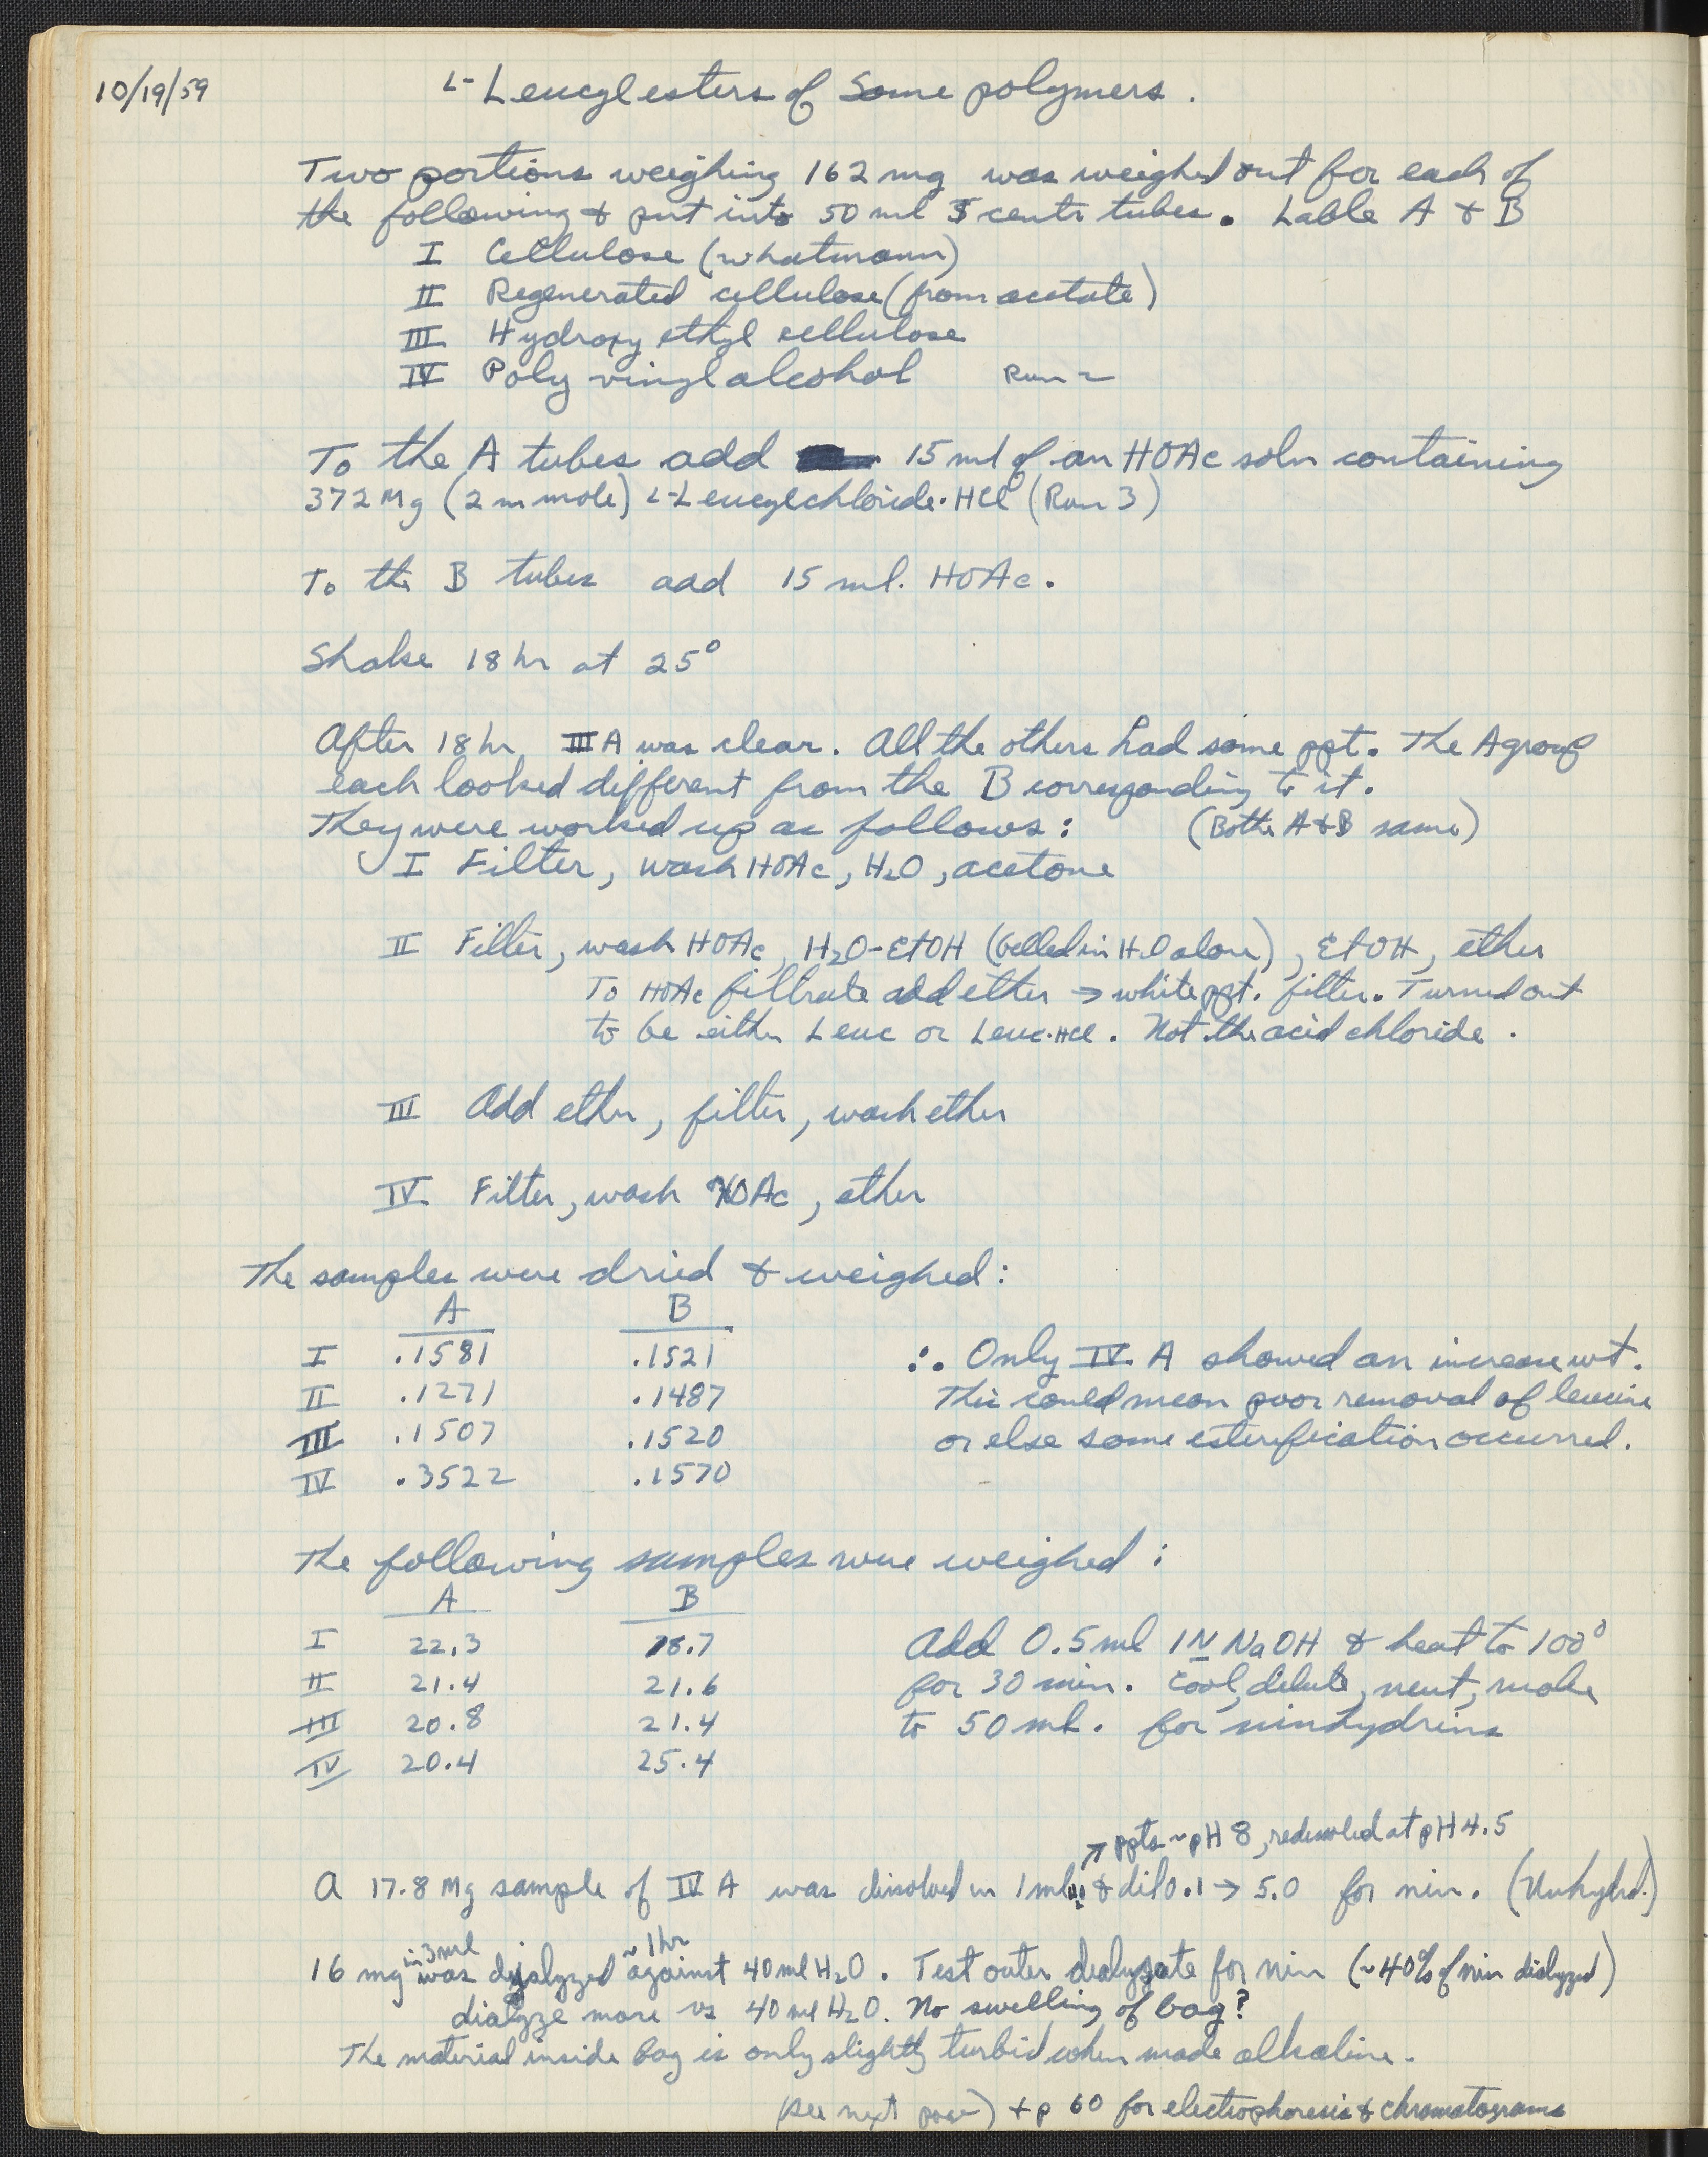 10/19/59
L-Leucylesters of Some polymers.
Two portions weighing 162 mg was weighed out for each of
the following & put into 50 ml $ cents tubes. Lable A & B
I Cellulose (whatmann)
II Regenerated cellulose (from acetate)
III Hydroxy ethyl cellulose
IV Poly vinyl alcohol Run 2
To the A tubes add 15 ml of an HOAc soln containing
372 Mg (2 m mole) L-Leucylchloride·HCl (Run 3)
To the B tubes add 15 ml. HOAc.
Shake 18 hr at 25°
After 18 hr, III A was clear. All the others had some ppt. The A group
each looked different from the B corresponding to it.
They were worked up as follows: (Both A & B same)
I Filter, wash HOAc, H2O, acetone
II Filter, wash HOAc, H2O-EtOH (Gelled in H2O alone), EtOH, ether
To HOAc filtrate add ether → white ppt. filter. Turned out
to be either Leuc or Leuc·HCl. Not the acid chloride.
III Add ether, filter, wash ether
IV Filter, wash HOAc, ether
The samples were dried & weighed:
A B
I .1581 .1521 ∴ Only IV A showed an increase wt.
II .1271 .1487 This could mean poor removal of leucine
III .1507 .1520 or else some esterification occurred.
IV .3522 .1570
The following samples were weighed:
A B
I 22.3 18.7 Add 0.5 ml 1N NaOH & heat to 100°
II 21.4 21.6 for 30 min. Cool, dilute, neut, make
III 20.8 21.4 to 50 ml. for ninhydrins
IV 20.4 25.4
↗ ppts ~ pH 8, redissolved at pH 4.5
A 17.8 Mg sample of IV A was dissolved in 1 ml & dil 0.1 → 5.0 for nin. (Unhyd.)
in 3 ml ~ 1 hr
16 mg was dialyzed against 40 ml H2O. Test outer dialyzate for nin (~40% of nin dialyzed)
dialyze more vs 40 ml H2O. No swelling of bag?
The material inside bag is only slightly turbid when made alkaline.
(see next page) + p 60 for electrophoresis & chromatograms